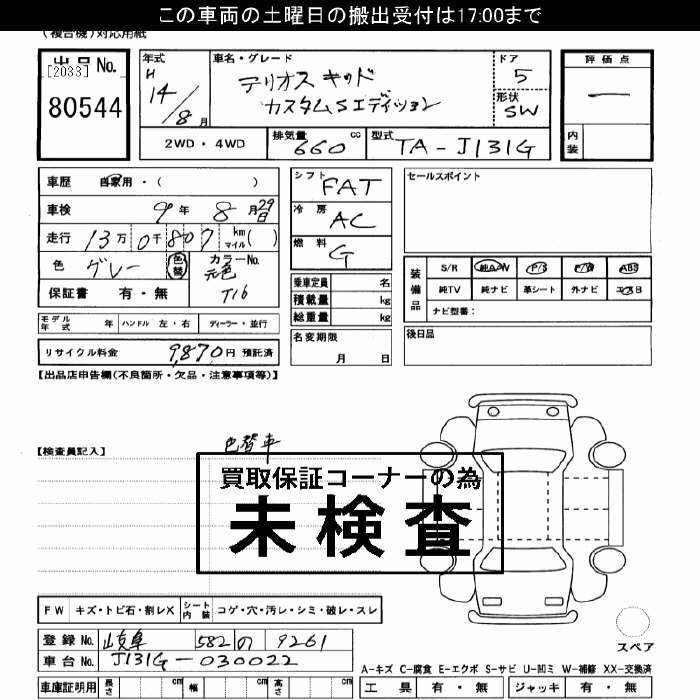 この車両の土曜日の搬出受付は17:00まで
(複合機)対応用紙
出品No. [2033] 80544
年式 H 14/8月
車名・グレード テリオス キッド カスタムSエディション
ドア 5
形状 SW
評価点 一
内装
2WD・4WD
排気量 660 cc
型式 TA-J131G
車歴 自家用・( )
車検 9年 8月29日
走行 13万0千807 km マイル( )
色 グレー 色替 カラーNo. 元色 T16
保証書 有・無
モデル年式 年 ハンドル 左・右 ディーラー・並行
リサイクル料金 9,870円 預託済
シフト FAT
冷房 AC
燃料 G
乗車定員 名
積載量 kg
総重量 kg
名変期限 月 日
セールスポイント
装備品 S/R 純A/W P/S P/W ABS
純TV 純ナビ 革シート 外ナビ エアB
ナビ型番：
後日品
【出品店申告欄(不良箇所・欠品・注意事項等)】
色替車
【検査員記入】
買取保証コーナーの為
未検査
FW キズ・トビ石・割レX シート内装 コゲ・穴・汚レ・シミ・破レ・スレ
スペア
登録No. 岐阜 582 の 9261
車台No. J131G-030022
A-キズ C-腐食 E-エクボ S-サビ U-凹ミ W-補修 XX-交換済
車庫証明用 長さ cm 幅 cm 高さ cm
工具 有・無 ジャッキ 有・無